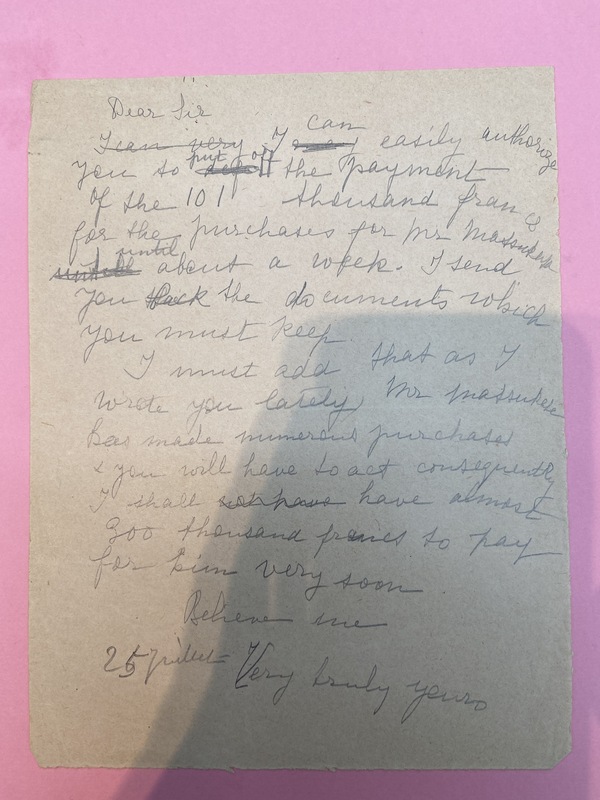 Dear Sir
I can very I can easily authorize
you to put off the payment
of the 101 thousand francs
for the purchases for Mr Matsukata
until about a week. I send
you back the documents which
you must keep.
I must add that as I
wrote you lately, Mr Matsukata
has made numerous purchases
& you will have to act consequently
I shall not have have almost
300 thousand francs to pay
for him very soon
Believe me
25 juillet Very truly yours